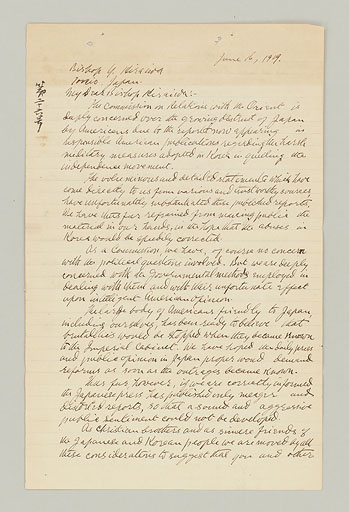 June 6, 1919.
Bishop Y. Hiraiwa
Tokio Japan.
My dear Bishop Hiraiwa:-
The Commission on Relations with the Orient is
deeply concerned over the growing distrust of Japan
by Americans due to the reports now appearing in
responsible American publications regarding the harsh
military measures adopted in Korea in quelling the
independence movement.
The voluminous and detailed statements which have
come directly to us from various and trustworthy sources,
have unfortunately substantiated these published reports
We have thus far refrained from making public the
material in our hands, in the hope that the abuses in
Korea would be speedily corrected.
As a Commission we have, of course no concern
with the political questions involved. But we are deeply
concerned with the Governmental methods employed in
dealing with them and with their unfortunate effect
upon intelligent American opinion.
The large body of Americans friendly to Japan,
including ourselves, has been ready to believe that
brutalities would be stopped when they became known
to the Imperial Cabinet. We have hoped also that press
and public opinion in Japan proper would demand
reforms as soon as the outrages became known.
Thus far however, if we are correctly informed
the Japanese press has published only meager and
distorted reports, so that a sound and aggressive
public sentiment could not be developed.
As Christian brothers and as sincere friends of
the Japanese and Korean people we are moved by all
these considerations to suggest that you and other